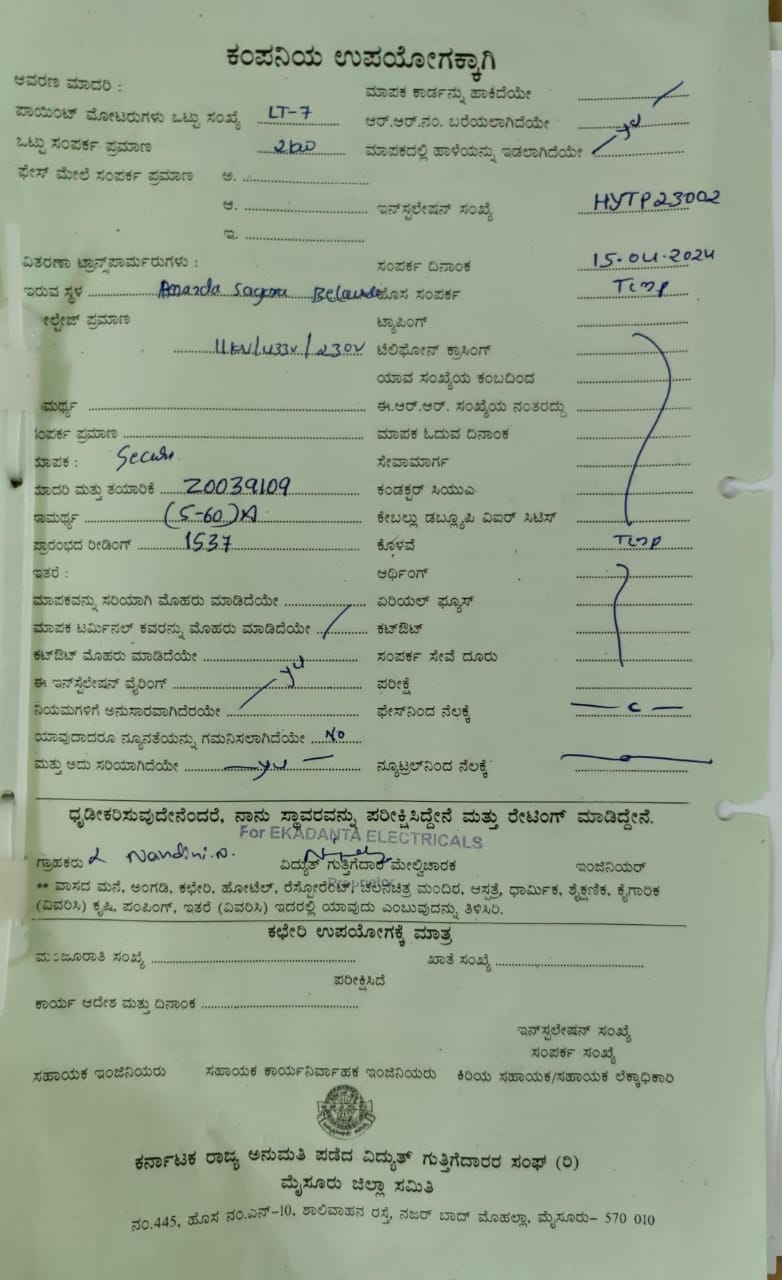 ಕಂಪನಿಯ ಉಪಯೋಗಕ್ಕಾಗಿ
ಆವರಣ ಮಾದರಿ :
ಮಾಪಕ ಕಾರ್ಡನ್ನು ಹಾಕಿದೆಯೇ
ಪಾಯಿಂಟ್ ಮೋಟರುಗಳು ಒಟ್ಟು ಸಂಖ್ಯೆ LT-7
ಆರ್.ಆರ್.ನಂ. ಬರೆಯಲಾಗಿದೆಯೇ
ಒಟ್ಟು ಸಂಪರ್ಕ ಪ್ರಮಾಣ
ಮಾಪಕದಲ್ಲಿ ಹಾಳೆಯನ್ನು ಇಡಲಾಗಿದೆಯೇ
ಫೇಸ್ ಮೇಲೆ ಸಂಪರ್ಕ ಪ್ರಮಾಣ ಅ.
ಆ.
ಇನ್‌ಸ್ಟಲೇಷನ್ ಸಂಖ್ಯೆ HYTP23002
ಇ.
ವಿತರಣಾ ಟ್ರಾನ್ಸ್‌ಪಾರ್ಮರುಗಳು :
ಸಂಪರ್ಕ ದಿನಾಂಕ 15.04.2024
ಇರುವ ಸ್ಥಳ
ಹೊಸ ಸಂಪರ್ಕ
ಲ್ಟೇಜ್ ಪ್ರಮಾಣ
ಟ್ಯಾಪಿಂಗ್
11KV/433V/230V
ಟೆಲಿಫೋನ್ ಕ್ರಾಸಿಂಗ್
ಯಾವ ಸಂಖ್ಯೆಯ ಕಂಬದಿಂದ
ಮರ್ಥ್ಯ
ಈ.ಆರ್.ಆರ್. ಸಂಖ್ಯೆಯ ನಂತರದ್ದು
ಸಂಪರ್ಕ ಪ್ರಮಾಣ
ಮಾಪಕ ಓದುವ ದಿನಾಂಕ
ಮಾಪಕ : Secure
ಸೇವಾಮಾರ್ಗ
ಮಾದರಿ ಮತ್ತು ತಯಾರಿಕೆ Z0039109
ಕಂಡಕ್ಟರ್ ಸಿಯುಎ
ಸಾಮರ್ಥ್ಯ (5-60)A
ಕೇಬಲ್ಲು ಡಬ್ಲ್ಯೂಪಿ ವಿಐರ್ ಸಿಟಿಸ್
ಪ್ರಾರಂಭದ ರೀಡಿಂಗ್ 1537
ಕೊಳವೆ
ಇತರೆ :
ಆರ್ಥಿಂಗ್
ಮಾಪಕವನ್ನು ಸರಿಯಾಗಿ ಮೊಹರು ಮಾಡಿದೆಯೇ
ಏರಿಯಲ್ ಫ್ಯೂಸ್
ಮಾಪಕ ಟರ್ಮಿನಲ್ ಕವರನ್ನು ಮೊಹರು ಮಾಡಿದೆಯೇ
ಕಟ್‌ಔಟ್
ಕಟ್‌ಔಟ್ ಮೊಹರು ಮಾಡಿದೆಯೇ
ಸಂಪರ್ಕ ಸೇವೆ ದೂರು
ಈ ಇನ್‌ಸ್ಟಲೇಷನ್ ವೈರಿಂಗ್
ಪರೀಕ್ಷೆ
ನಿಯಮಗಳಿಗೆ ಅನುಸಾರವಾಗಿದೆರಯೇ
ಫೇಸ್‌ನಿಂದ ನೆಲಕ್ಕೆ
ಯಾವುದಾದರೂ ನ್ಯೂನತೆಯನ್ನು ಗಮನಿಸಲಾಗಿದೆಯೇ No
ಮತ್ತು ಅದು ಸರಿಯಾಗಿದೆಯೇ
ನ್ಯೂಟ್ರಲ್‌ನಿಂದ ನೆಲಕ್ಕೆ
ಧೃಡೀಕರಿಸುವುದೇನೆಂದರೆ, ನಾನು ಸ್ಥಾವರವನ್ನು ಪರೀಕ್ಷಿಸಿದ್ದೇನೆ ಮತ್ತು ರೇಟಿಂಗ್ ಮಾಡಿದ್ದೇನೆ.
For EKADANTA ELECTRICALS
ಗ್ರಾಹಕರು Nandini.D.
ವಿದ್ಯುತ್ ಗುತ್ತಿಗೆದಾರ ಮೇಲ್ವಿಚಾರಕ
ಇಂಜಿನಿಯರ್
Proprietor
** ವಾಸದ ಮನೆ, ಅಂಗಡಿ, ಕಛೇರಿ, ಹೋಟೆಲ್, ರೆಸ್ಟೋರೆಂಟ್, ಚಲನಚಿತ್ರ ಮಂದಿರ, ಆಸ್ಪತ್ರೆ, ಧಾರ್ಮಿಕ, ಶೈಕ್ಷಣಿಕ, ಕೈಗಾರಿಕ
(ವಿವರಿಸಿ) ಕೃಷಿ, ಪಂಪಿಂಗ್, ಇತರೆ (ವಿವರಿಸಿ) ಇದರಲ್ಲಿ ಯಾವುದು ಎಂಬುವುದನ್ನು ತಿಳಿಸಿರಿ.
ಕಛೇರಿ ಉಪಯೋಗಕ್ಕೆ ಮಾತ್ರ
ಮಂಜೂರಾತಿ ಸಂಖ್ಯೆ
ಖಾತೆ ಸಂಖ್ಯೆ
ಪರೀಕ್ಷಿಸಿದೆ
ಕಾರ್ಯ ಆದೇಶ ಮತ್ತು ದಿನಾಂಕ
ಇನ್‌ಸ್ಟಲೇಷನ್ ಸಂಖ್ಯೆ
ಸಂಪರ್ಕ ಸಂಖ್ಯೆ
ಸಹಾಯಕ ಇಂಜಿನಿಯರು
ಸಹಾಯಕ ಕಾರ್ಯನಿರ್ವಾಹಕ ಇಂಜಿನಿಯರು
ಕಿರಿಯ ಸಹಾಯಕ/ಸಹಾಯಕ ಲೆಕ್ಕಾಧಿಕಾರಿ
ಕರ್ನಾಟಕ ರಾಜ್ಯ ಅನುಮತಿ ಪಡೆದ ವಿದ್ಯುತ್ ಗುತ್ತಿಗೆದಾರರ ಸಂಘ (ರಿ)
ಮೈಸೂರು ಜಿಲ್ಲಾ ಸಮಿತಿ
ನಂ.445, ಹೊಸ ನಂ.ಎನ್-10, ಶಾಲಿವಾಹನ ರಸ್ತೆ, ನಜರ್ ಬಾದ್ ಮೊಹಲ್ಲಾ, ಮೈಸೂರು- 570 010